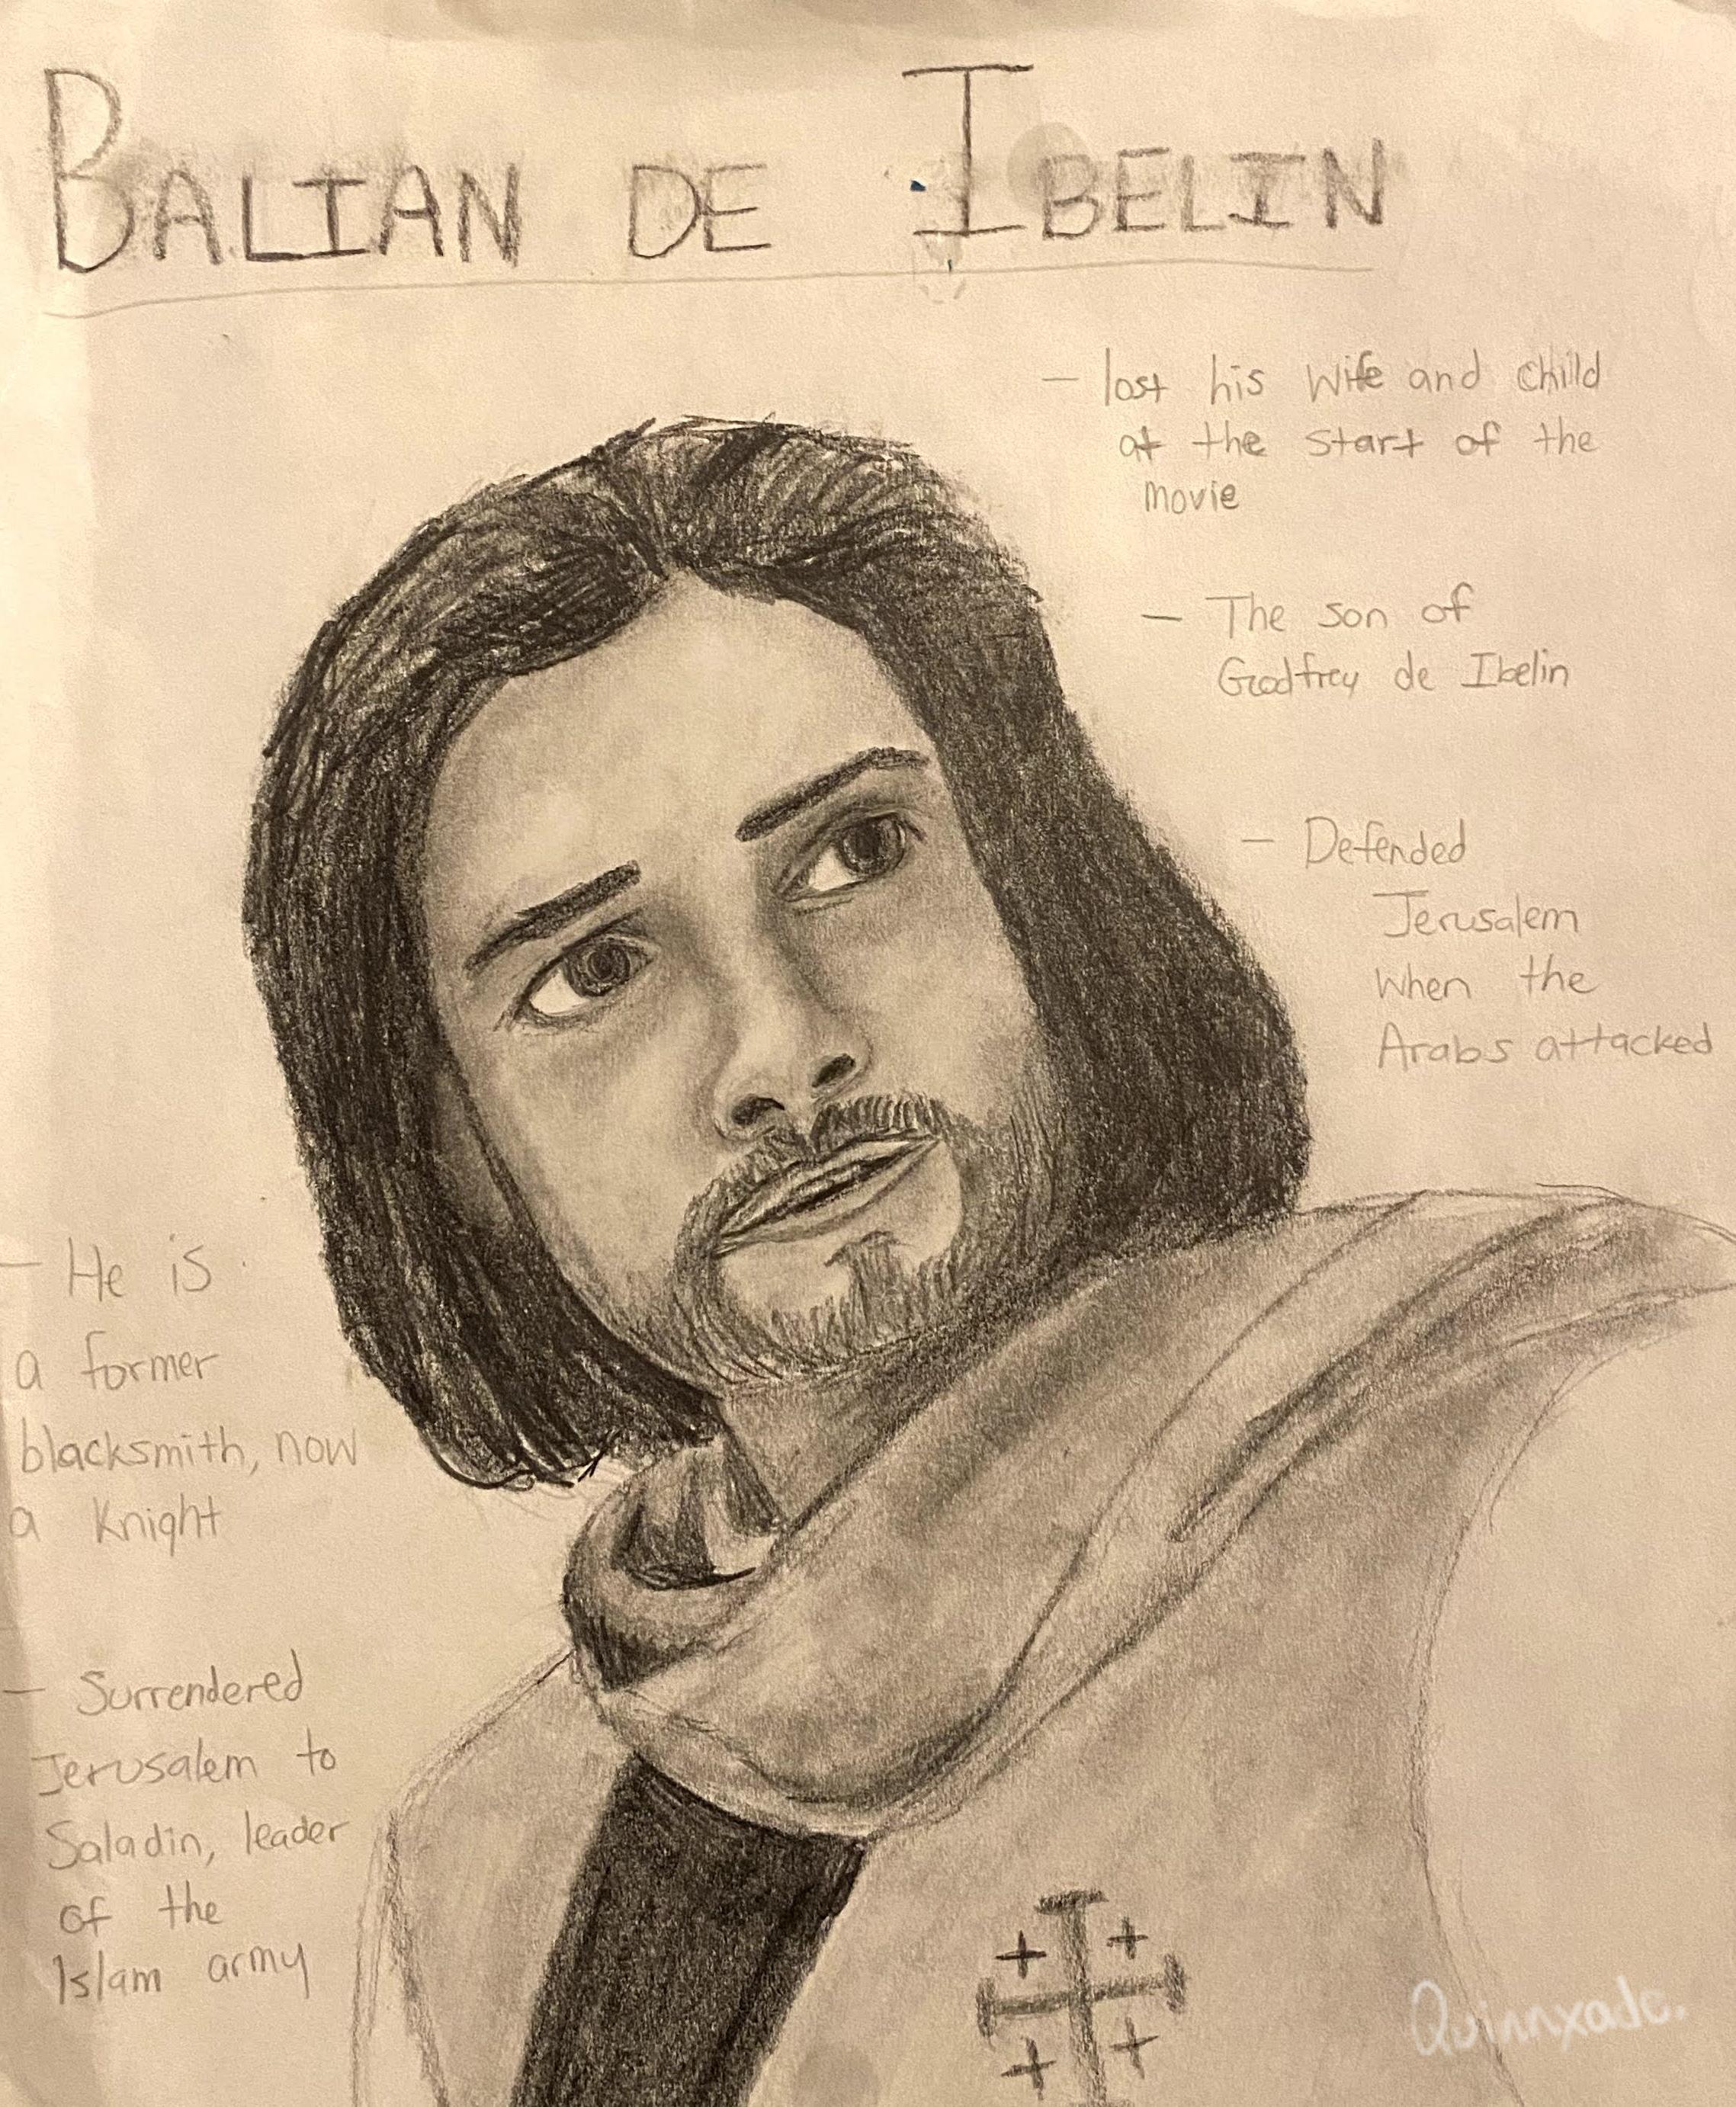 BALIAN DE IBELIN
– lost his wife and child
at the start of the
movie
– The son of
Godfrey de Ibelin
– Defended
Jerusalem
when the
Arabs attacked
– He is
a former
blacksmith, now
a Knight
– Surrendered
Jerusalem to
Saladin, leader
of the
Islam army
Quinnxadc.